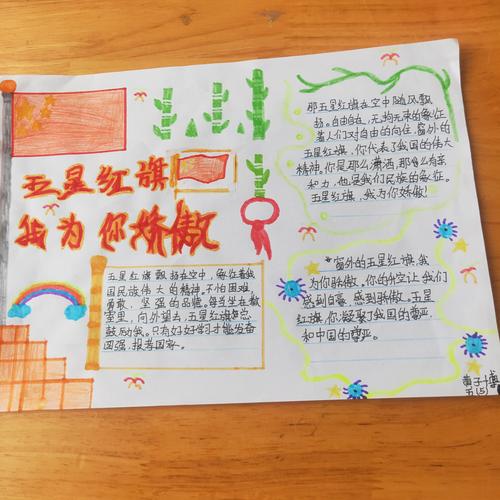 五星红旗
我为你骄傲
那五星红旗在空中随风飘
扬。自由自在,无拘无束的象征
着人们对自由的向往。窗外的
五星红旗,你代表了我国的伟大
精神。你是那么潇洒,那么有亲
和力,他是我们民族的象征。
五星红旗,我为你骄傲!
五星红旗飘扬在空中,象征着我
国民族伟大的精神。不怕困难
勇敢、坚强的品德。每当坐在教
室里,向外望去,五星红旗总
鼓励我。只有好好学习才能发奋
图强,报答国家。
窗外的五星红旗,我
为你骄傲。你的让我们
感到自豪,感到骄傲。五星
红旗,你凝聚了我国的
和中国的
黄子博
五(5)